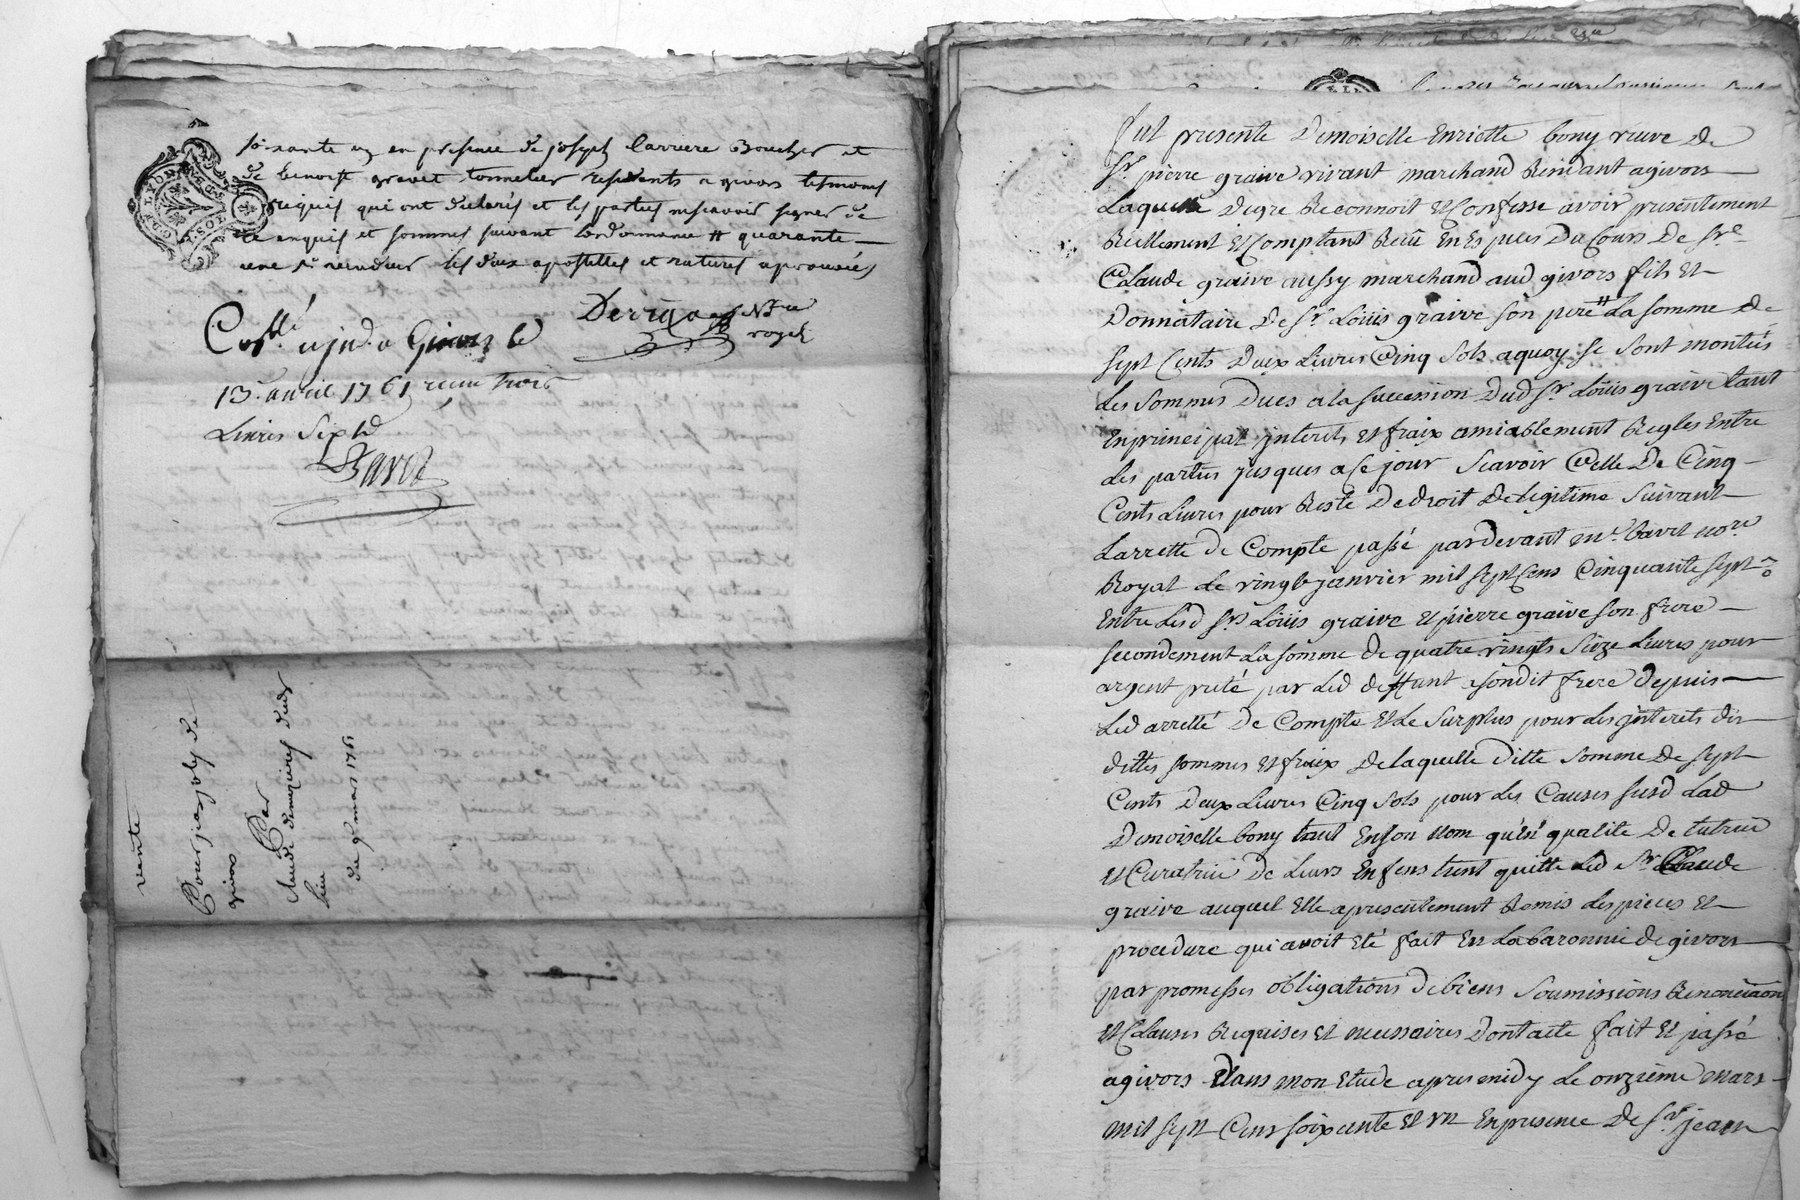 soixante un en presence de joseph Carriere Boucher et
de benoist grevet tonnelier residents a givors tesmoins
requis qui ont declarés et les parties nescavoir signer de
ce enquis et sommes suivant lordonnance # quarante
une sr vendeur les deux apostilles et ratures aprouvées
Derrigo Nre
royal
Collé a Givors le
13. avril 1761 recu trois
Livres Six
Bavet
vente
Pour jay joly de
givors
Par
Claude
du 9e mars 1761
Fut presente Demoiselle Enriette bony veuve de
Sr pierre graive vivant marchand Residant agivors
Laquelle Degre Reconnoit Et Confesse avoir presentement
Reellement Et Comptant Reçu En Especes Du Cours De Sre
Claude graive aussy marchand aud givors fils Et
Donnataire De Sr Loüis graive son pere # La somme De
sept Cents Deux Livres Cinq sols aquoy se sont montées
Les sommes Dues ala succession Dud Sr Loüis graive tant
En principal jnterets Et fraix amiablement Regles Entre
Les parties jusques a ce jour scavoir Celle De Cinq
Cents Livres pour Reste De droit De legitime suivant
Larrette de Compte passé pardevant me. bavet nore
Royal le vingt janvier mil sept Cens Cinquante sept
Entre Lesd Srs Loüis graive Et pierre graive son frere
secondement La somme De quatre vingts seize Livres pour
argent preté par Led deffunt a sondit frere Depuis
Led arretté De Compte Et Le surplus pour Les jnterets des
dittes sommes Et fraix De laquelle Ditte somme De sept
Cents Deux Livres Cinq sols pour Les Causes susd Lad
Demoiselle bony tant En son nom qu'en qualite De tutrice
Et Curatrice De Leurs Enfens tient quitte Led Sr Claude
graive auquel Elle apresentement Remis Les pieces Et
procedure qui avoit Eté fait En La baronnie De givors
par promesses obligations De biens soumissions Renonciaon
Et Clauses Requises Et necessaires Dont acte fait Et passé
agivors Dans mon Etude apres midy Le onzieme mars
mil sept Cens soixante Et un En presence De Sr jean